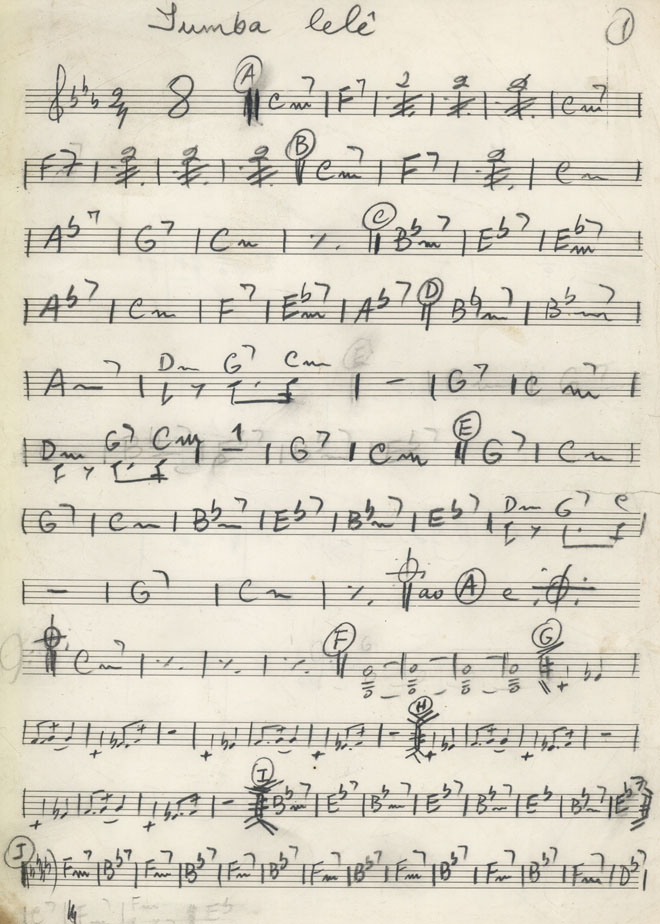 Tumba lelê 1
2/4 8 A Cm7 | F7 | 2 | 2 | 2 | Cm7
F7 | 2 | 2 | 2 B Cm7 | F7 | 2 | Cm
Ab7 | G7 | Cm | ٪ C Bbm7 | Eb7 | Ebm7
Ab7 | Cm | F7 | Ebm7 | Ab7 D Bbm7 | Bbm7
Am7 | Dm G7 Cm | – | G7 | Cm7
Dm G7 Cm | 1 | G7 | Cm E G7 | Cm
G7 | Cm | Bbm7 | Eb7 | Bbm7 | Eb7 | Dm G7 C
– | G7 | Cm | ٪ ao A e
Cm7 | ٪ | ٪ | ٪ F G
H
I Bbm7 | Eb7 | Bbm7 | Eb7 | Bbm7 | Eb | Bbm7 | Eb7
J Fm7 | Bb7 | Fm7 | Bb7 | Fm7 | Bb7 | Fm7 | Bb7 | Fm7 | Bb7 | Fm7 | Bb7 | Fm7 | Db7